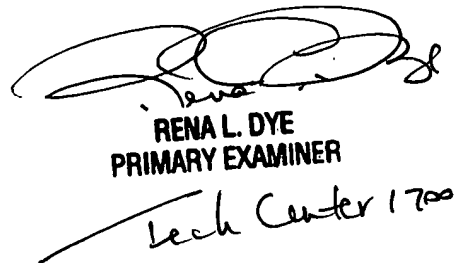 Rena Dye
RENA L. DYE
PRIMARY EXAMINER
Tech Center 1700